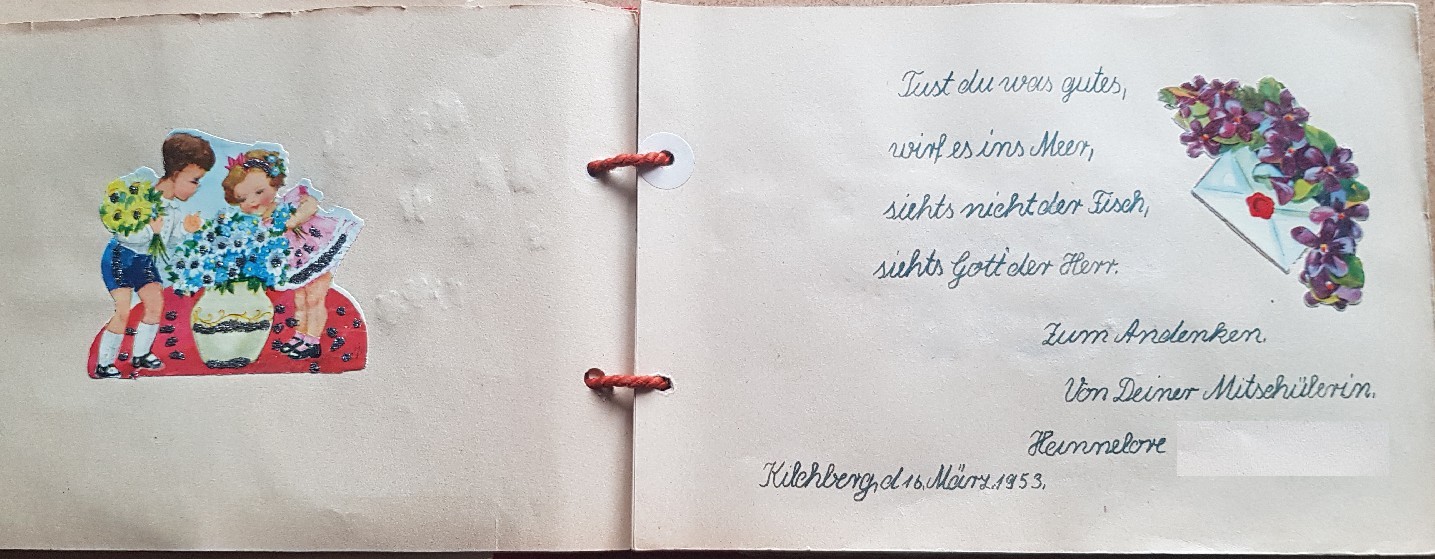 Tust du was gutes,
wirf es ins Meer,
siehts nicht der Fisch,
siehts Gott der Herr.
Zum Andenken.
Von Deiner Mitschülerin.
Hannelore
Kilchberg, d 16. März. 1953.